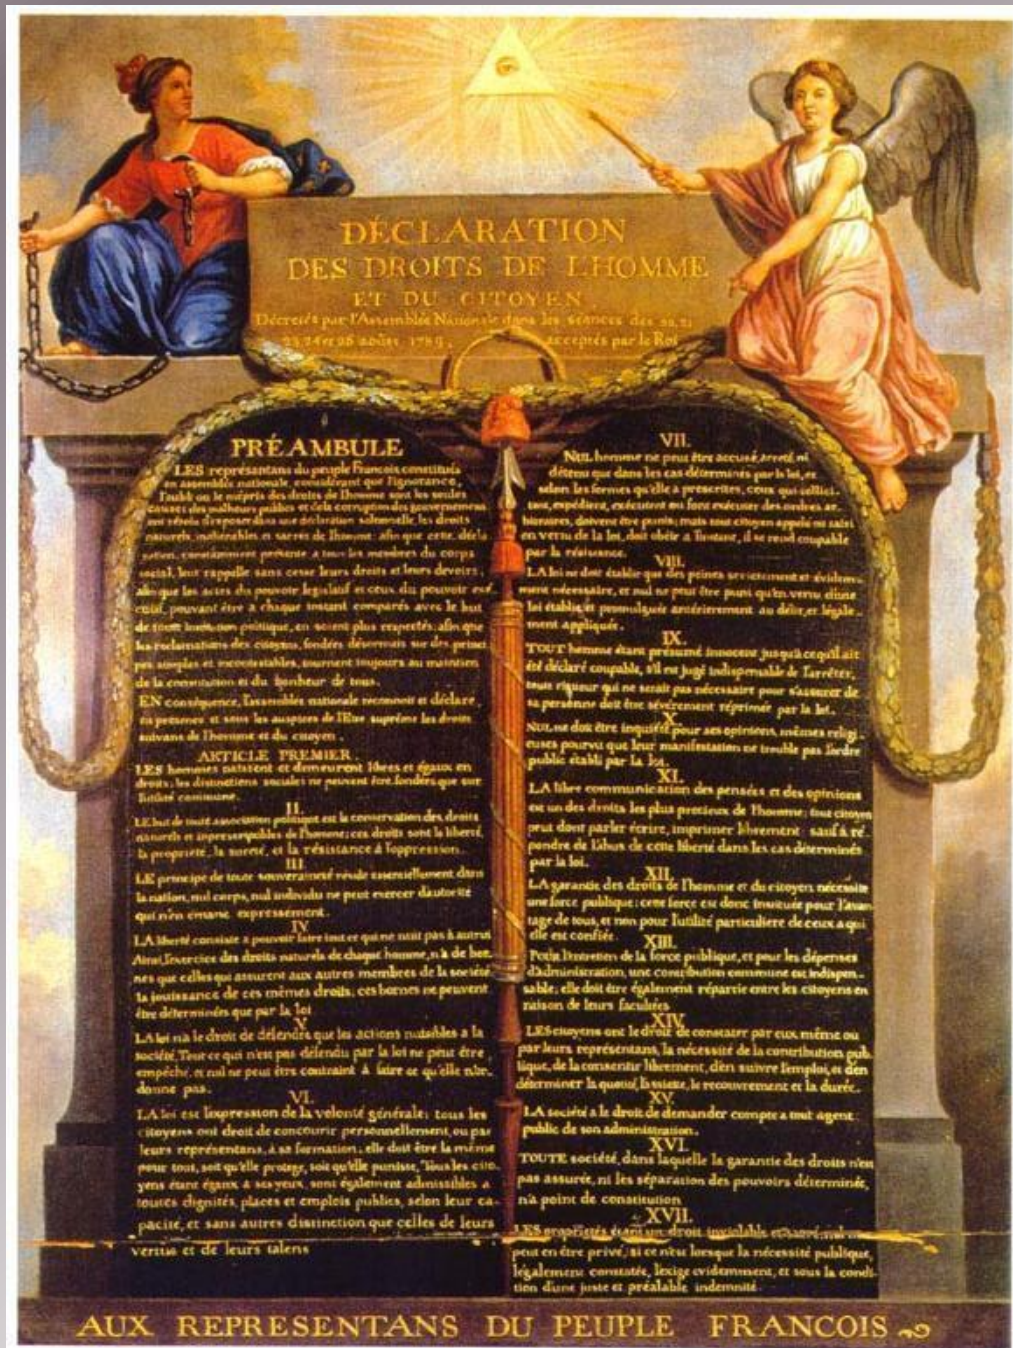 DÉCLARATION
DES DROITS DE L'HOMME
ET DU CITOYEN,
Décretés par l'Assemblée Nationale dans les séances des 20, 21
23, 24 et 26 août 1789, acceptés par le Roi
PRÉAMBULE
LES représantans du peuple Francois, constitués
en assemblée nationale, considérant que l'ignorance,
l'oubli ou le mépris des droits de l'homme sont les seules
causes des malheurs publics et de la corruption des gouvernemens
ont résolu d'exposer dans une déclaration solemnelle, les droits
naturels, inaliénables et sacrés de l'homme; afin que cette décla
ration, constamment présente a tous les membres du corps
social, leur rappelle sans cesse leurs droits et leurs devoirs;
afin que les actes du pouvoir legislatif et ceux du pouvoir exé-
cutif, pouvant être a chaque instant comparés avec le but
de toute institution politique, en soient plus respectés; afin que
les reclamations des citoyens, fondées desormais sur des princi
pes simples et incontestables, tournent toujours au maintien
de la constitution et du bonheur de tous.
EN conséquence, l'assemblée nationale reconnoit et déclare,
en presence et sous les auspices de l'Etre suprême les droits
suivans de l'homme et du citoyen.
ARTICLE PREMIER.
LES hommes naissent et demeurent libres et égaux en
droits; les distinctions sociales ne peuvent être fondées que sur
l'utilité commune.
II.
LE but de toute association politique est la conservation des droits
naturels et inprescriptibles de l'homme; ces droits sont la liberté,
la propriété, la sureté, et la résistance à l'oppression.
III
LE principe de toute souveraineté réside essentiellement dans
la nation, nul corps, nul individu ne peut exercer d'autorité
qui n'en émane expressement.
IV
LA liberté consiste a pouvoir faire tout ce qui ne nuit pas à autrui
Ainsi, l'exercice des droits naturels de chaque homme, n'a de bor-
nes que celles qui assurent aux autres membres de la société
la jouissance de ces mêmes droits; ces bornes ne peuvent
être déterminées que par la loi
V
LA loi n'a le droit de défendre que les actions nuisibles a la
société. Tout ce qui n'est pas défendu par la loi ne peut être
empêché, et nul ne peut être contraint à faire ce qu'elle n'or-
donne pas.
VI.
LA loi est l'expression de la volonté générale; tous les
citoyens ont droit de concourir personnellement, ou par
leurs représentans, à sa formation; elle doit être la même
pour tous, soit qu'elle protege, soit qu'elle punisse. Tous les cito-
yens étant égaux à ses yeux, sont également admissibles a
toutes dignités, places et emplois publics, selon leur ca-
pacité, et sans autres distinction que celles de leurs
vertus et de leurs talens
VII.
NUL homme ne peut être accusé, arreté, ni
détenu que dans les cas déterminés par la loi, et
selon les formes qu'elle à prescrites, ceux qui sollici-
tent, expédient, exécutent ou font exécuter des ordres ar-
bitraires, doivent être punis; mais tout citoyen appelé ou saisi
en vertu de la loi, doit obéir a l'instant, il se rend coupable
par la résistance.
VIII.
LA loi ne doit établir que des peines strictement et évidem-
ment nécessaire, et nul ne peut être puni qu'en vertu d'une
loi établie et promulguée antérierement au délit, et légale-
ment appliquée.
IX.
TOUT homme étant présumé innocent jusqu'à ce qu'il ait
été déclaré coupable, s'il est jugé indispensable de l'arrêter,
toute rigueur qui ne serait pas nécessaire pour s'assurer de
sa personne doit être sévèrement réprimée par la loi.
X.
NUL ne doit être inquiété pour ses opinions, mêmes religi-
euses pourvu que leur manifestation ne trouble pas l'ordre
public établi par la loi.
XI.
LA libre communication des pensées et des opinions
est un des droits les plus precieux de l'homme; tout citoyen
peut dont parler écrire, imprimer librement: sauf à ré-
pondre de l'abus de cette liberté dans les cas déterminés
par la loi.
XII.
LA garantie des droits de l'homme et du citoyen nécessite
une force publique; cette force est donc instituée pour l'avan-
tage de tous, et non pour l'utilité particuliere de ceux a qui
elle est confiée.
XIII.
POUR l'entretien de la force publique, et pour les dépenses
d'administration, une contribution commune est indispen-
sable; elle doit être également répartie entre les citoyens en
raison de leurs facultées
XIV.
LES citoyens ont le droit de constater par eux même ou
par leurs représentans, la nécessité de la contribution pub-
lique, de la consentir librement, d'en suivre l'emploi, et d'en
déterminer la quotité, l'assiette, le recouvrement et la durée.
XV.
LA société a le droit de demander compte a tout agent
public de son administration.
XVI.
TOUTE société, dans laquelle la garantie des droits n'est
pas assurée, ni les séparation des pouvoirs déterminée,
n'a point de constitution
XVII.
LES propriétés étant un droit inviolable et sacré, nul ne
peut en être privé, si ce n'est lorsque la nécessité publique,
légalement constatée, l'exige evidemment, et sous la condi-
tion d'une juste et préalable indemnité.
AUX REPRESENTANS DU PEUPLE FRANCOIS